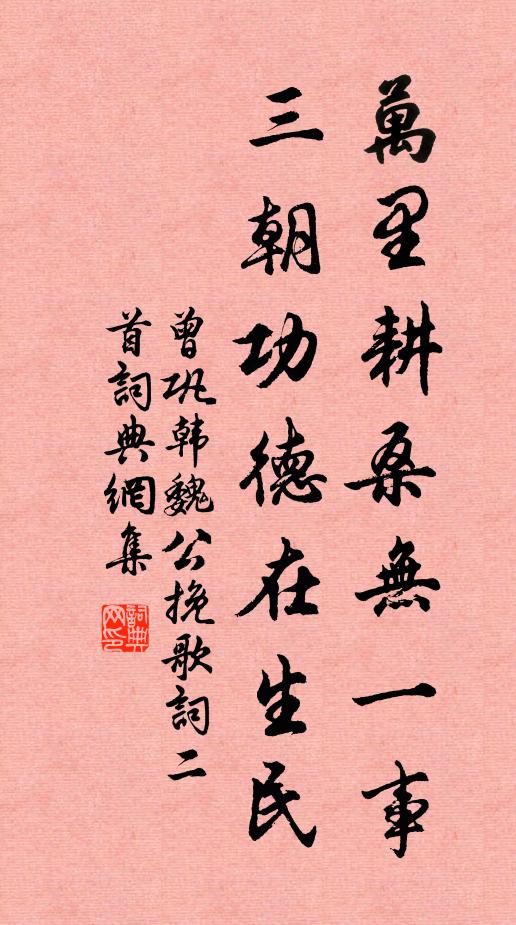 萬里耕桑無一事
三朝功德在生民
曾巩韩魏公挽歌詞二
首詞典網集
詞典网印